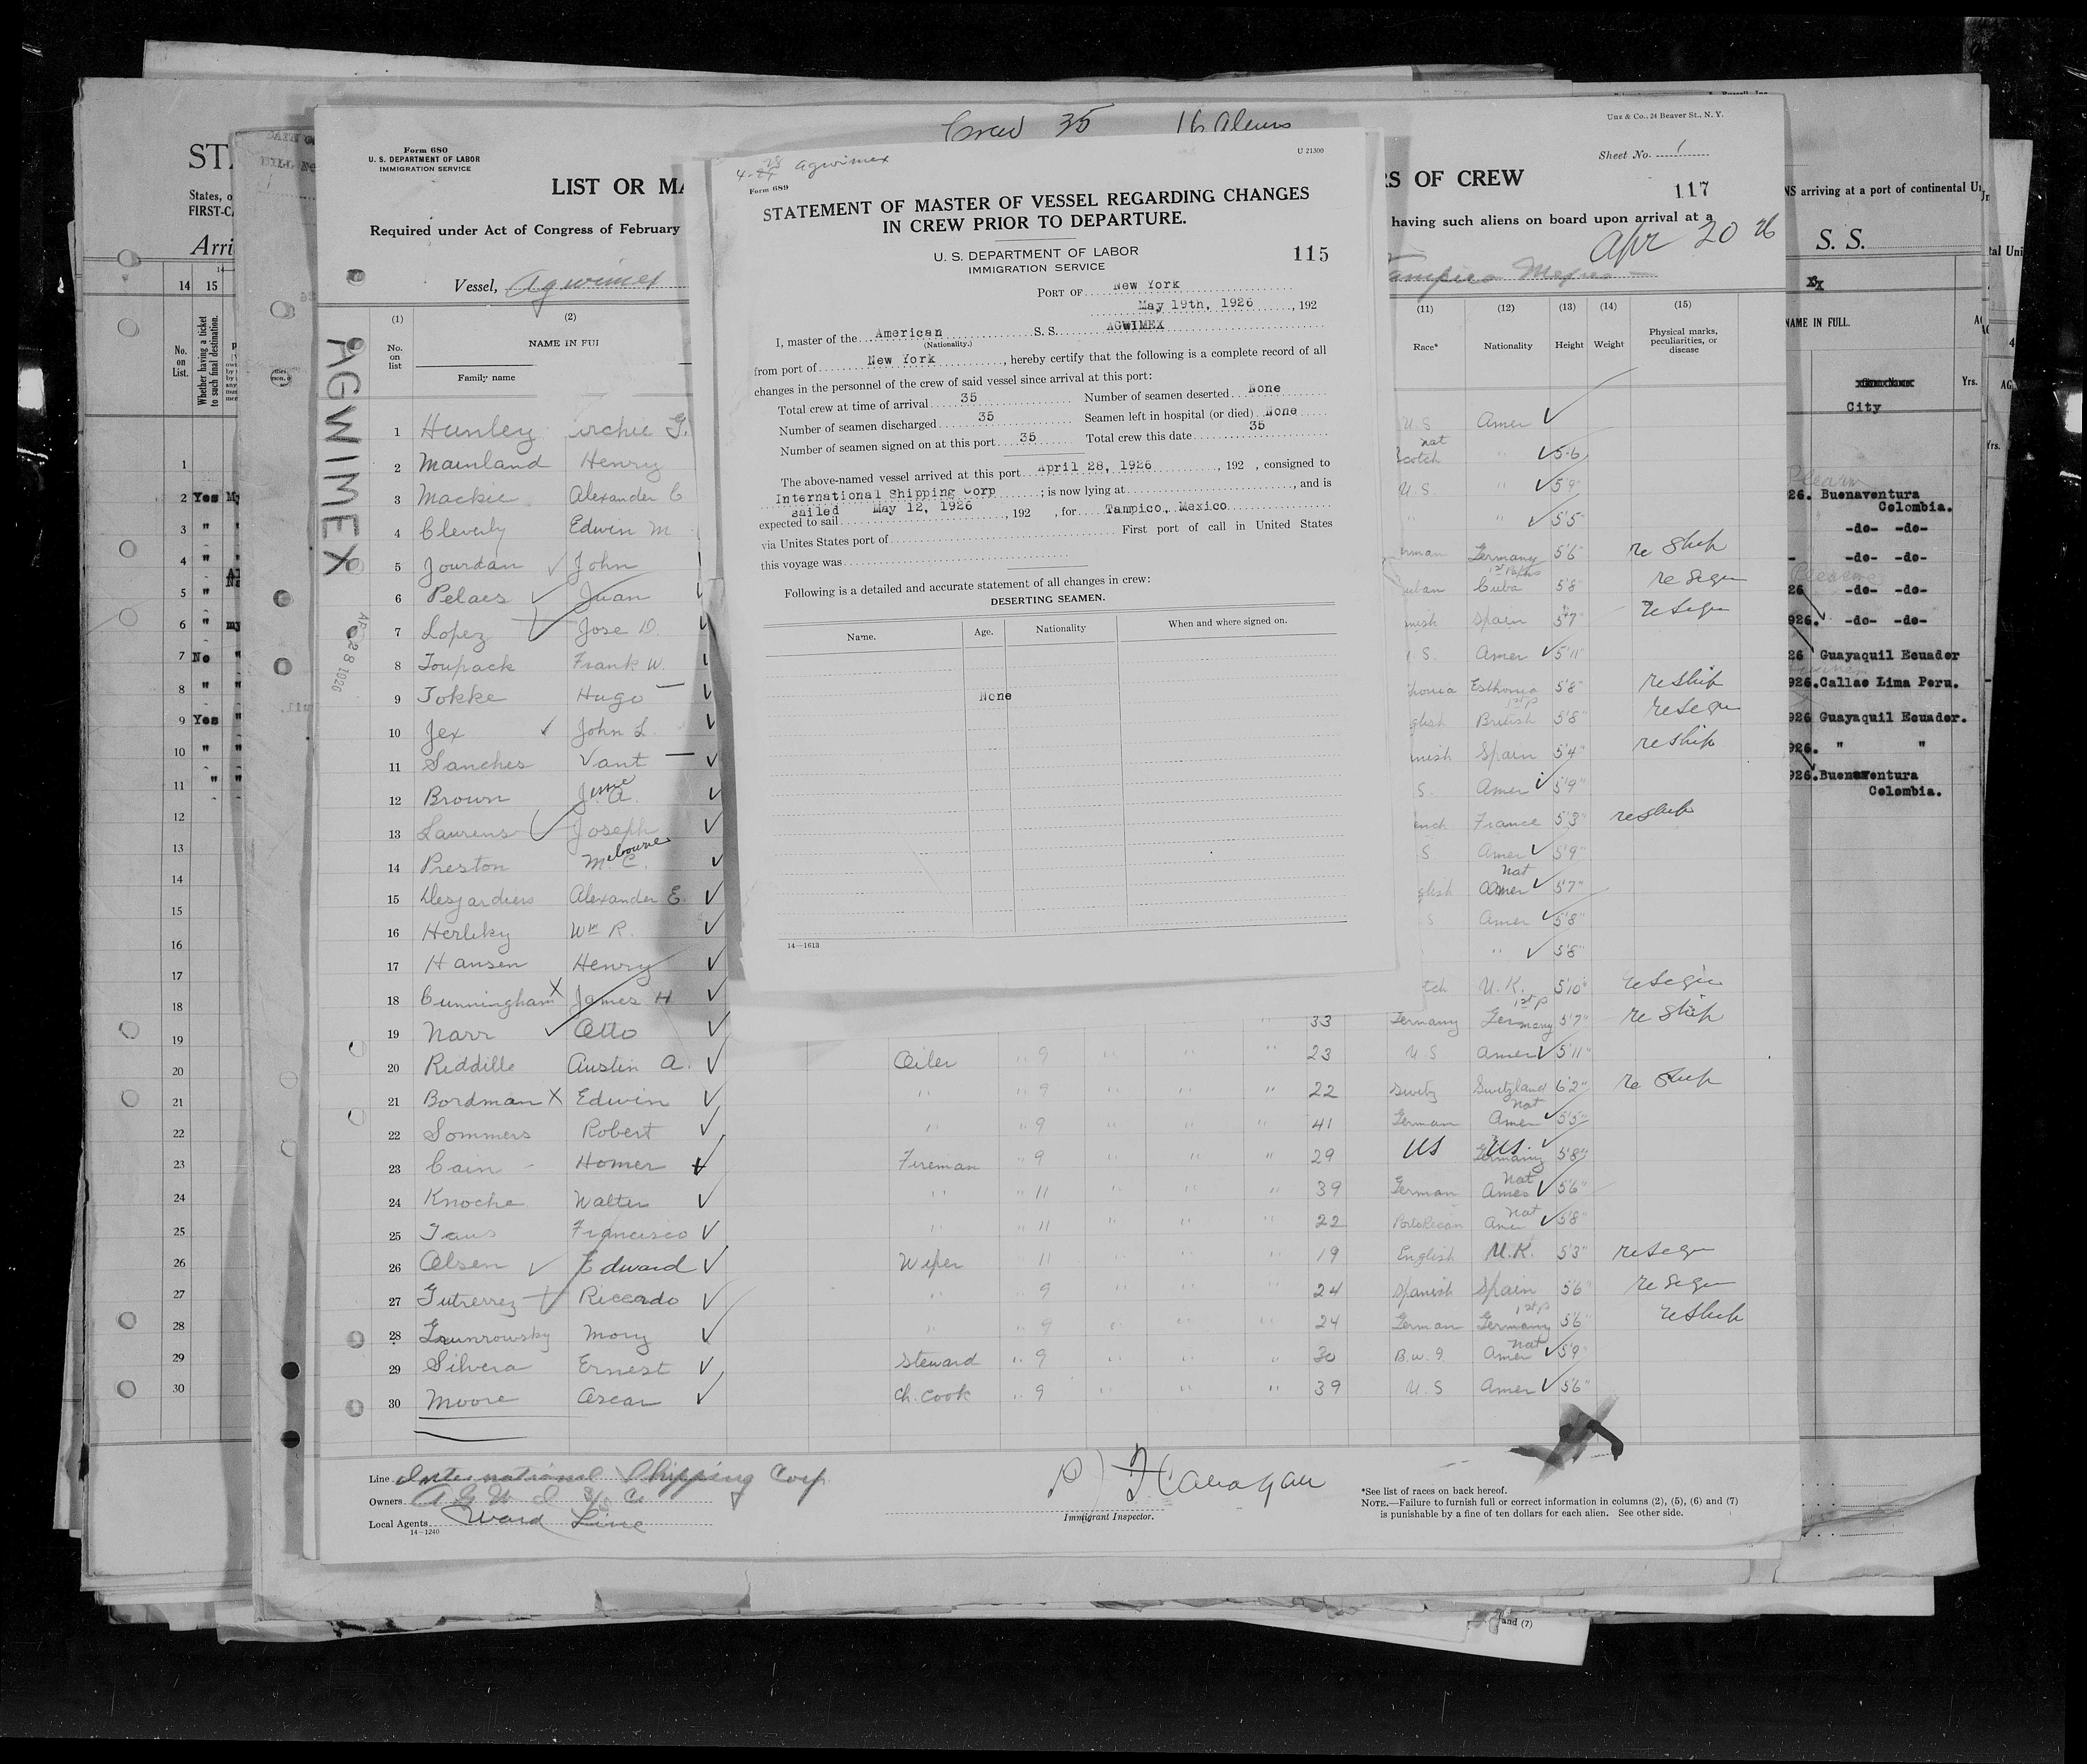 Crew 35 16 Aliens
Form 680
U. S. DEPARTMENT OF LABOR
IMMIGRATION SERVICE
LIST OR MA
Required under Act of Congress of February
Vessel, Agwimex
AGWIMEX
(1) (2)
No. on list
NAME IN FUL
Family name
1 Hunley rchie G.
2 Mainland Henry
3 Mackie Alexander C
4 Cleverly Edwin M
5 Jourdan John
6 Pelaes Juan
7 Lopez Jose D.
8 Toupack Frank W.
9 Tokke Hugo
10 Jex John L
11 Sanches Vant
12 Brown Jesse A.
13 Laurens Joseph
14 Preston Melbourne C.
15 Desjardiens Alexander E.
16 Herlihy Wm R.
17 Hansen Henry
18 Cunningham James H
19 Narr Otto
20 Riddille Austin A.
21 Bordman Edwin
22 Sommers Robert
23 Cain Homer
24 Knoche Walter
25 Taus Francisco
26 Olsen Edward
27 Gutrerrez Riccardo
28 Mony
29 Silvera Ernest
30 Moore Oscar
Line International Shipping Corp
Owners A G W I S/S Co
Local Agents Ward Line
14—1240
4-28 Agwimex
U 21300
Form 689
STATEMENT OF MASTER OF VESSEL REGARDING CHANGES
IN CREW PRIOR TO DEPARTURE.
U. S. DEPARTMENT OF LABOR
IMMIGRATION SERVICE
115
PORT OF New York
May 19th, 1926, 192
I, master of the American S. S. AGWIMEX
(Nationality.)
from port of New York, hereby certify that the following is a complete record of all
changes in the personnel of the crew of said vessel since arrival at this port:
Total crew at time of arrival 35 Number of seamen deserted None
Number of seamen discharged 35 Seamen left in hospital (or died) None
Number of seamen signed on at this port 35 Total crew this date 35
The above-named vessel arrived at this port April 28, 1926, 192 , consigned to
International Shipping Corp; is now lying at, and is
expected to sail sailed May 12, 1926, 192 , for Tampico, Mexico
via Unites States port of First port of call in United States
this voyage was
Following is a detailed and accurate statement of all changes in crew:
DESERTING SEAMEN.
Name. Age. Nationality When and where signed on.
None
14—1613
Unz & Co., 24 Beaver St., N. Y.
Sheet No. 1
RS OF CREW
117
having such aliens on board upon arrival at a
Apr 20 26
Tampico Mexico
(11) (12) (13) (14) (15)
Race* Nationality Height Weight Physical marks, peculiarities, or disease
U.S Amer
Scotch nat " 5·6
U.S. " 5'9"
" " 5'5"
erman Germany 1st Papers 5'6" re ship
uban Cuba 5'8" re sign
nish Spain 5'7" re sign
S. Amer 5'11"
thonia Esthonia 5'8" reship
glish British 1st P 5'8" resign
nish Spain 5'4" reship
S. Amer 5'9"
ench France 5'3" reship
S Amer 5'9"
glish Amer nat 5'7"
S Amer 5'8"
" 5'8"
tch U.K. 5'10" resign
33 Germany Germany 1st P 5'7" re ship
Oiler " 9 " " " 23 U S Amer 5'11"
" " 9 " " " 22 Switz Switzland 6'2" re ship
" " 9 " " " 41 German Amer nat 5'5"
Fireman " 9 " " " 29 US US Germany 5'8"
" " 11 " " " 39 German Amer Nat 5'6"
" " 11 " " " 22 PortoRecan Amer nat 5'8"
Wiper 11 " " " 19 English U.K. 5'3" resign
" 9 " " " 24 Spanish Spain 5'6" re sign
" 9 " " " 24 German Germany 1st P 5'6" reship
Steward " 9 " " " 30 B.W.I. Amer nat 5'9"
Ch. Cook " 9 " " " 39 U.S Amer 5'6"
Immigrant Inspector.
*See list of races on back hereof.
NOTE.—Failure to furnish full or correct information in columns (2), (5), (6) and (7)
is punishable by a fine of ten dollars for each alien. See other side.
and (7)
States, o
FIRST-C
Arri
14 15
No. on List.
Whether having a ticket to such final destination.
1
2 Yes My
3 " "
4 " "
5 "
6 " my
7 No "
8 " "
9 Yes "
10 " "
11 " "
12
13
14
15
16
17
18
19
20
21
22
23
24
25
26
27
28
29
30
NS arriving at a port of continental Un
S. S.
NAME IN FULL.
City
Yrs.
26. Buenaventura
Colombia.
-do- -do-
-do- -do-
26 -do- -do-
926. -do- -do-
26 Guayaquil Ecuador
926. Callao Lima Peru.
926 Guayaquil Ecuador.
926. " "
926. Buenaventura
Colombia.
tal Uni